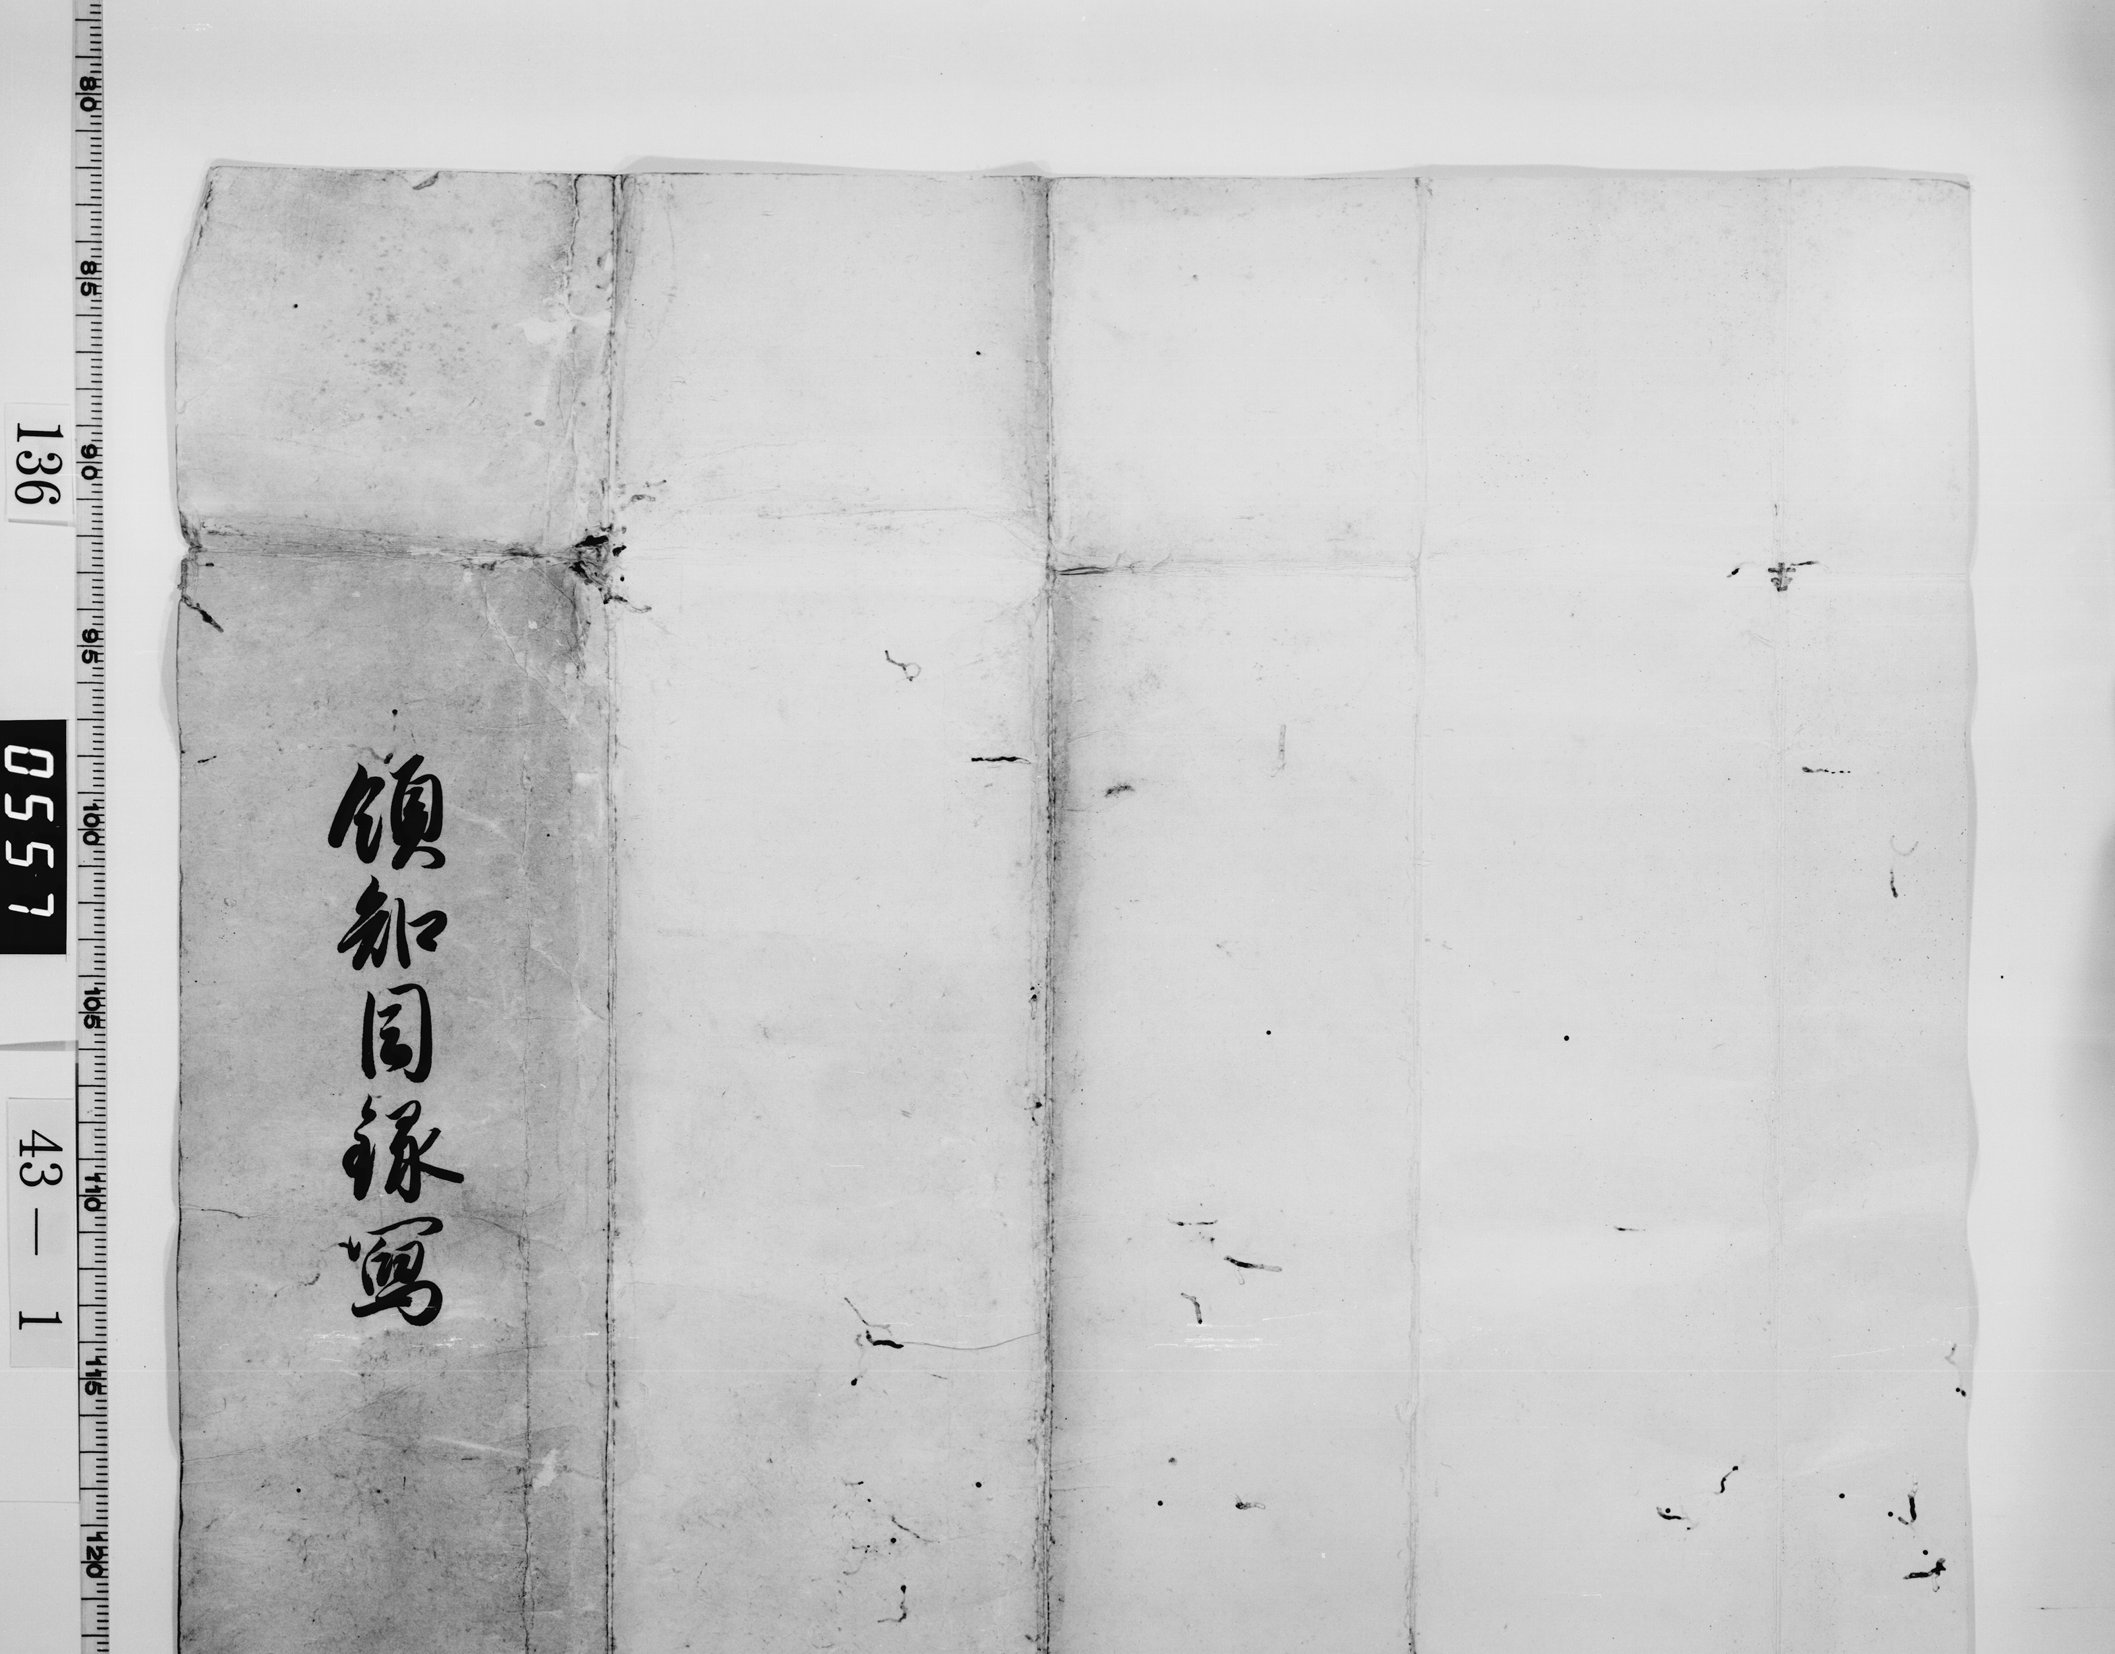 領知目録寫
136
0557
43—1
80
85
90
95
100
105
110
115
120